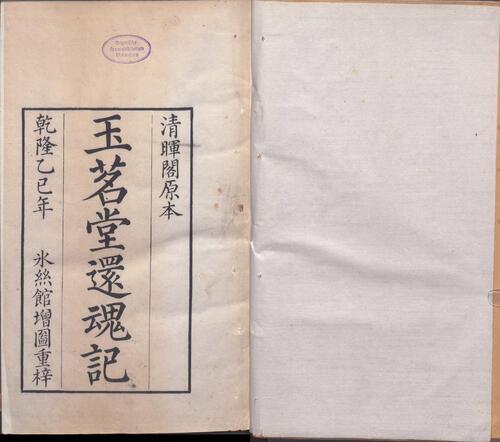 清暉閣原本
玉茗堂還魂記
乾隆乙巳年 氷絲館增圖重梓
Bayerische
Staatsbibliothek
München